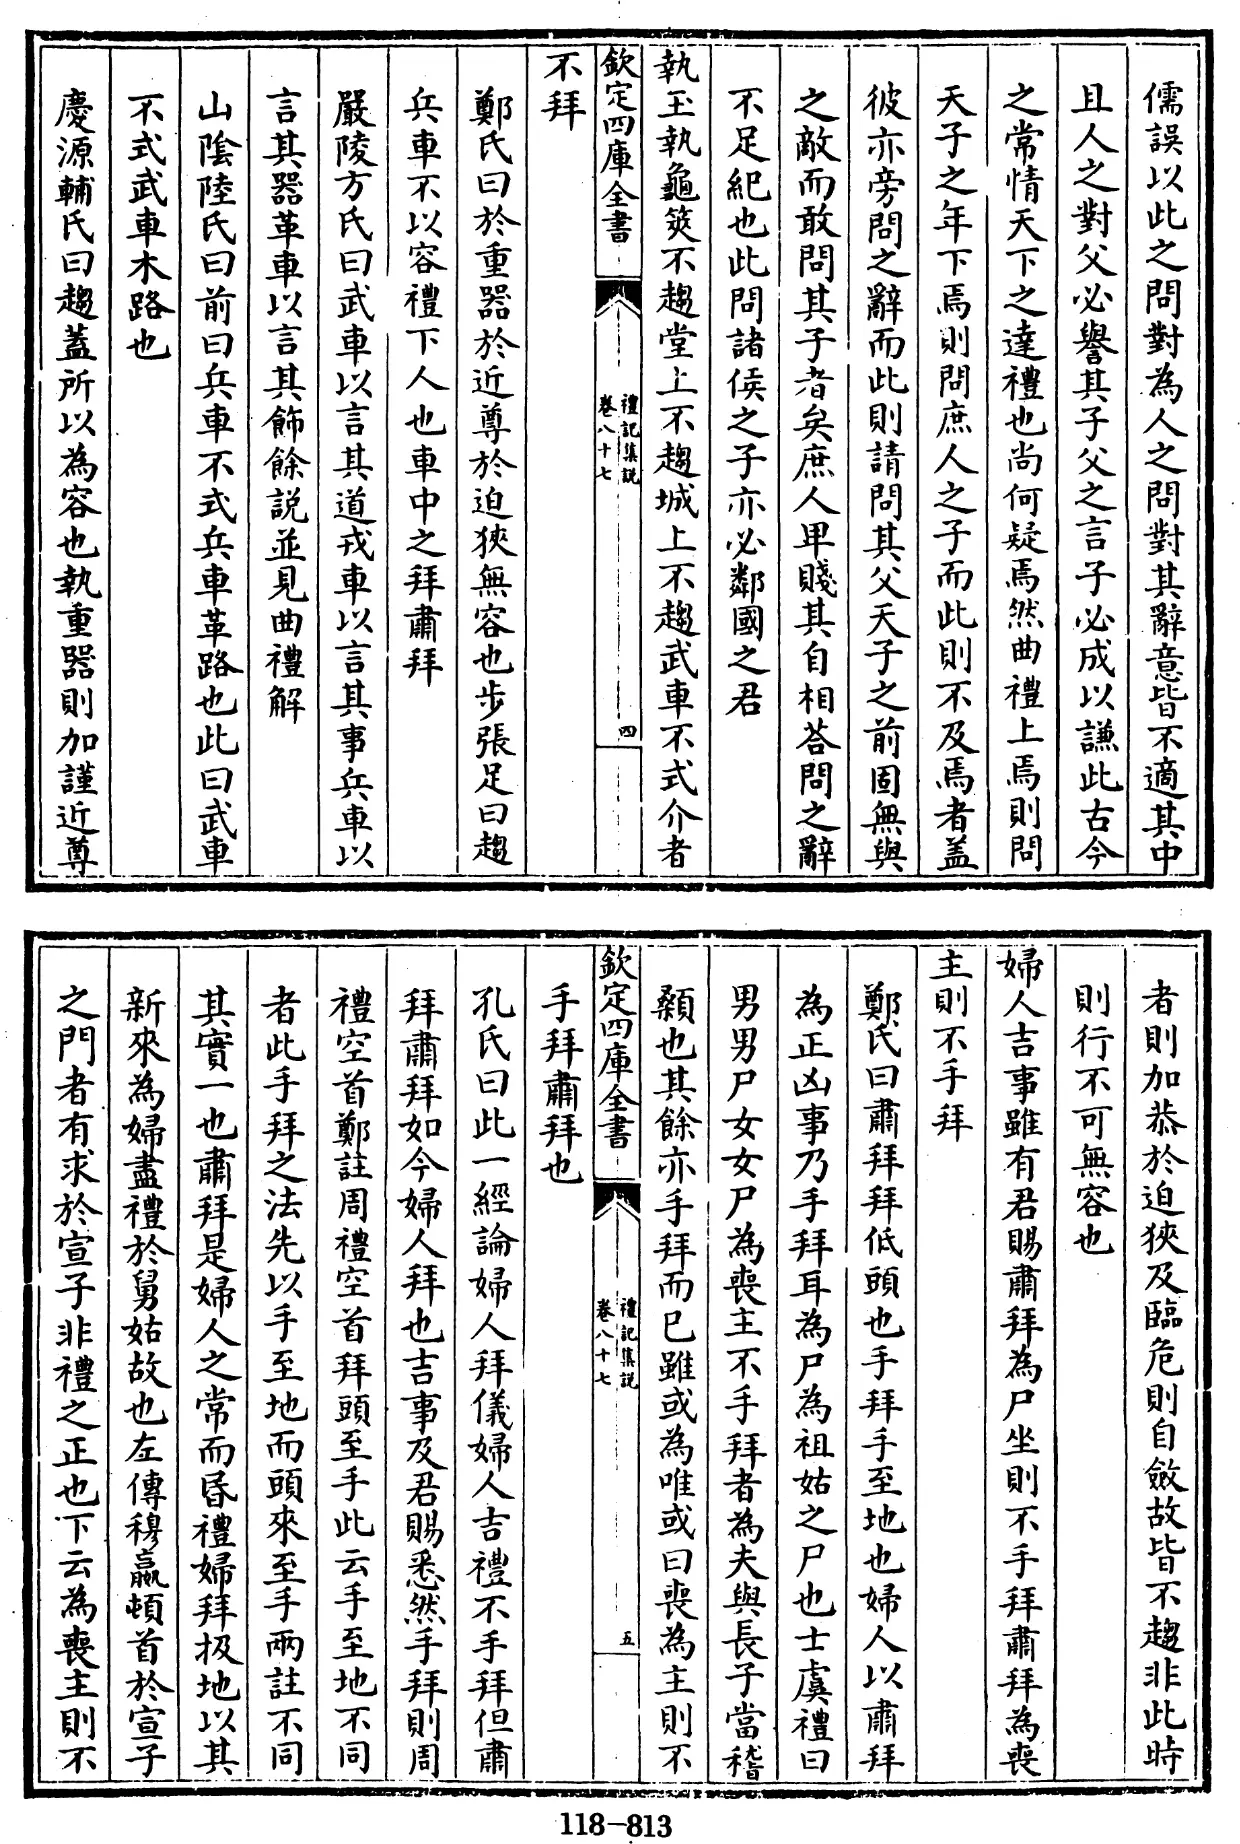 儒誤以此之問對為人之問對其辭意皆不適其中
且人之對父必譽其子父之言子必成以謙此古今
之常情天下之達禮也尚何疑焉然曲禮上焉則問
天子之年下焉則問庶人之子而此則不及焉者盖
彼亦旁問之辭而此則請問其父天子之前固無與
之敵而敢問其子者矣庶人卑賤其自相荅問之辭
不足紀也此問諸侯之子亦必鄰國之君
執玉執龜筴不趨堂上不趨城上不趨武車不式介者
欽定四庫全書
禮記集説
卷八十七
四
不拜
鄭氏曰於重器於近尊於迫狹無容也步張足曰趨
兵車不以容禮下人也車中之拜肅拜
嚴陵方氏曰武車以言其道戎車以言其事兵車以
言其器革車以言其飾餘説並見曲禮解
山陰陸氏曰前曰兵車不式兵車革路也此曰武車
不式武車木路也
慶源輔氏曰趨蓋所以為容也執重器則加謹近尊
者則加恭於迫狹及臨危則自斂故皆不趨非此時
則行不可無容也
婦人吉事雖有君賜肅拜為尸坐則不手拜肅拜為喪
主則不手拜
鄭氏曰肅拜拜低頭也手拜手至地也婦人以肅拜
為正凶事乃手拜耳為尸為祖姑之尸也士虞禮曰
男男尸女女尸為喪主不手拜者為夫與長子當稽
顙也其餘亦手拜而已雖或為唯或曰喪為主則不
欽定四庫全書
禮記集説
卷八十七
五
手拜肅拜也
孔氏曰此一經論婦人拜儀婦人吉禮不手拜但肅
拜肅拜如今婦人拜也吉事及君賜悉然手拜則周
禮空首鄭註周禮空首拜頭至手此云手至地不同
者此手拜之法先以手至地而頭來至手兩註不同
其實一也肅拜是婦人之常而昏禮婦拜扱地以其
新來為婦盡禮於舅姑故也左傳穆嬴頓首於宣子
之門者有求於宣子非禮之正也下云為喪主則不
118-813